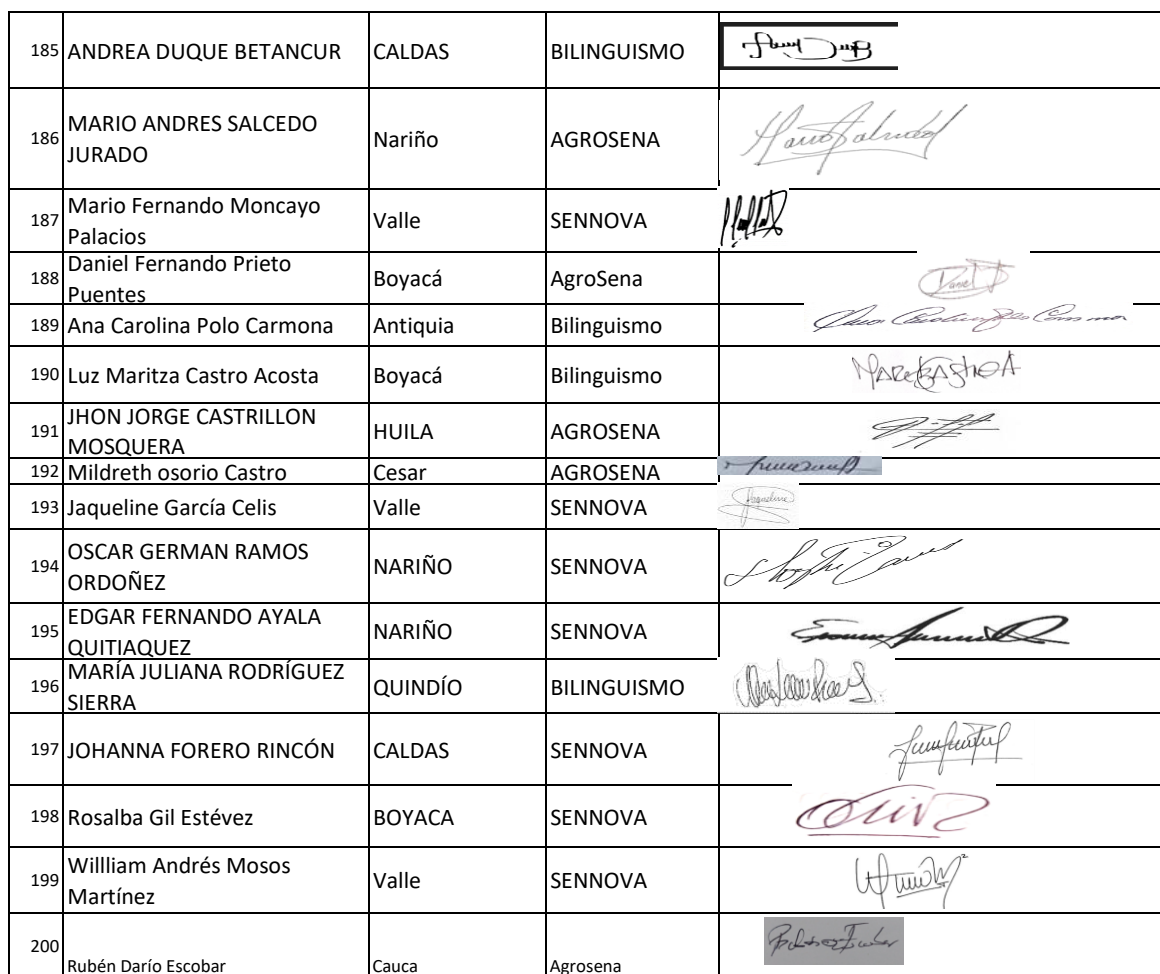 185 ANDREA DUQUE BETANCUR CALDAS BILINGUISMO
186 MARIO ANDRES SALCEDO JURADO Nariño AGROSENA
187 Mario Fernando Moncayo Palacios Valle SENNOVA
188 Daniel Fernando Prieto Puentes Boyacá AgroSena Daniel
189 Ana Carolina Polo Carmona Antiquia Bilinguismo
190 Luz Maritza Castro Acosta Boyacá Bilinguismo
191 JHON JORGE CASTRILLON MOSQUERA HUILA AGROSENA
192 Mildreth osorio Castro Cesar AGROSENA
193 Jaqueline García Celis Valle SENNOVA Jaqueline
194 OSCAR GERMAN RAMOS ORDOÑEZ NARIÑO SENNOVA
195 EDGAR FERNANDO AYALA QUITIAQUEZ NARIÑO SENNOVA
196 MARÍA JULIANA RODRÍGUEZ SIERRA QUINDÍO BILINGUISMO
197 JOHANNA FORERO RINCÓN CALDAS SENNOVA
198 Rosalba Gil Estévez BOYACA SENNOVA
199 Willliam Andrés Mosos Martínez Valle SENNOVA
200 Rubén Darío Escobar Cauca Agrosena